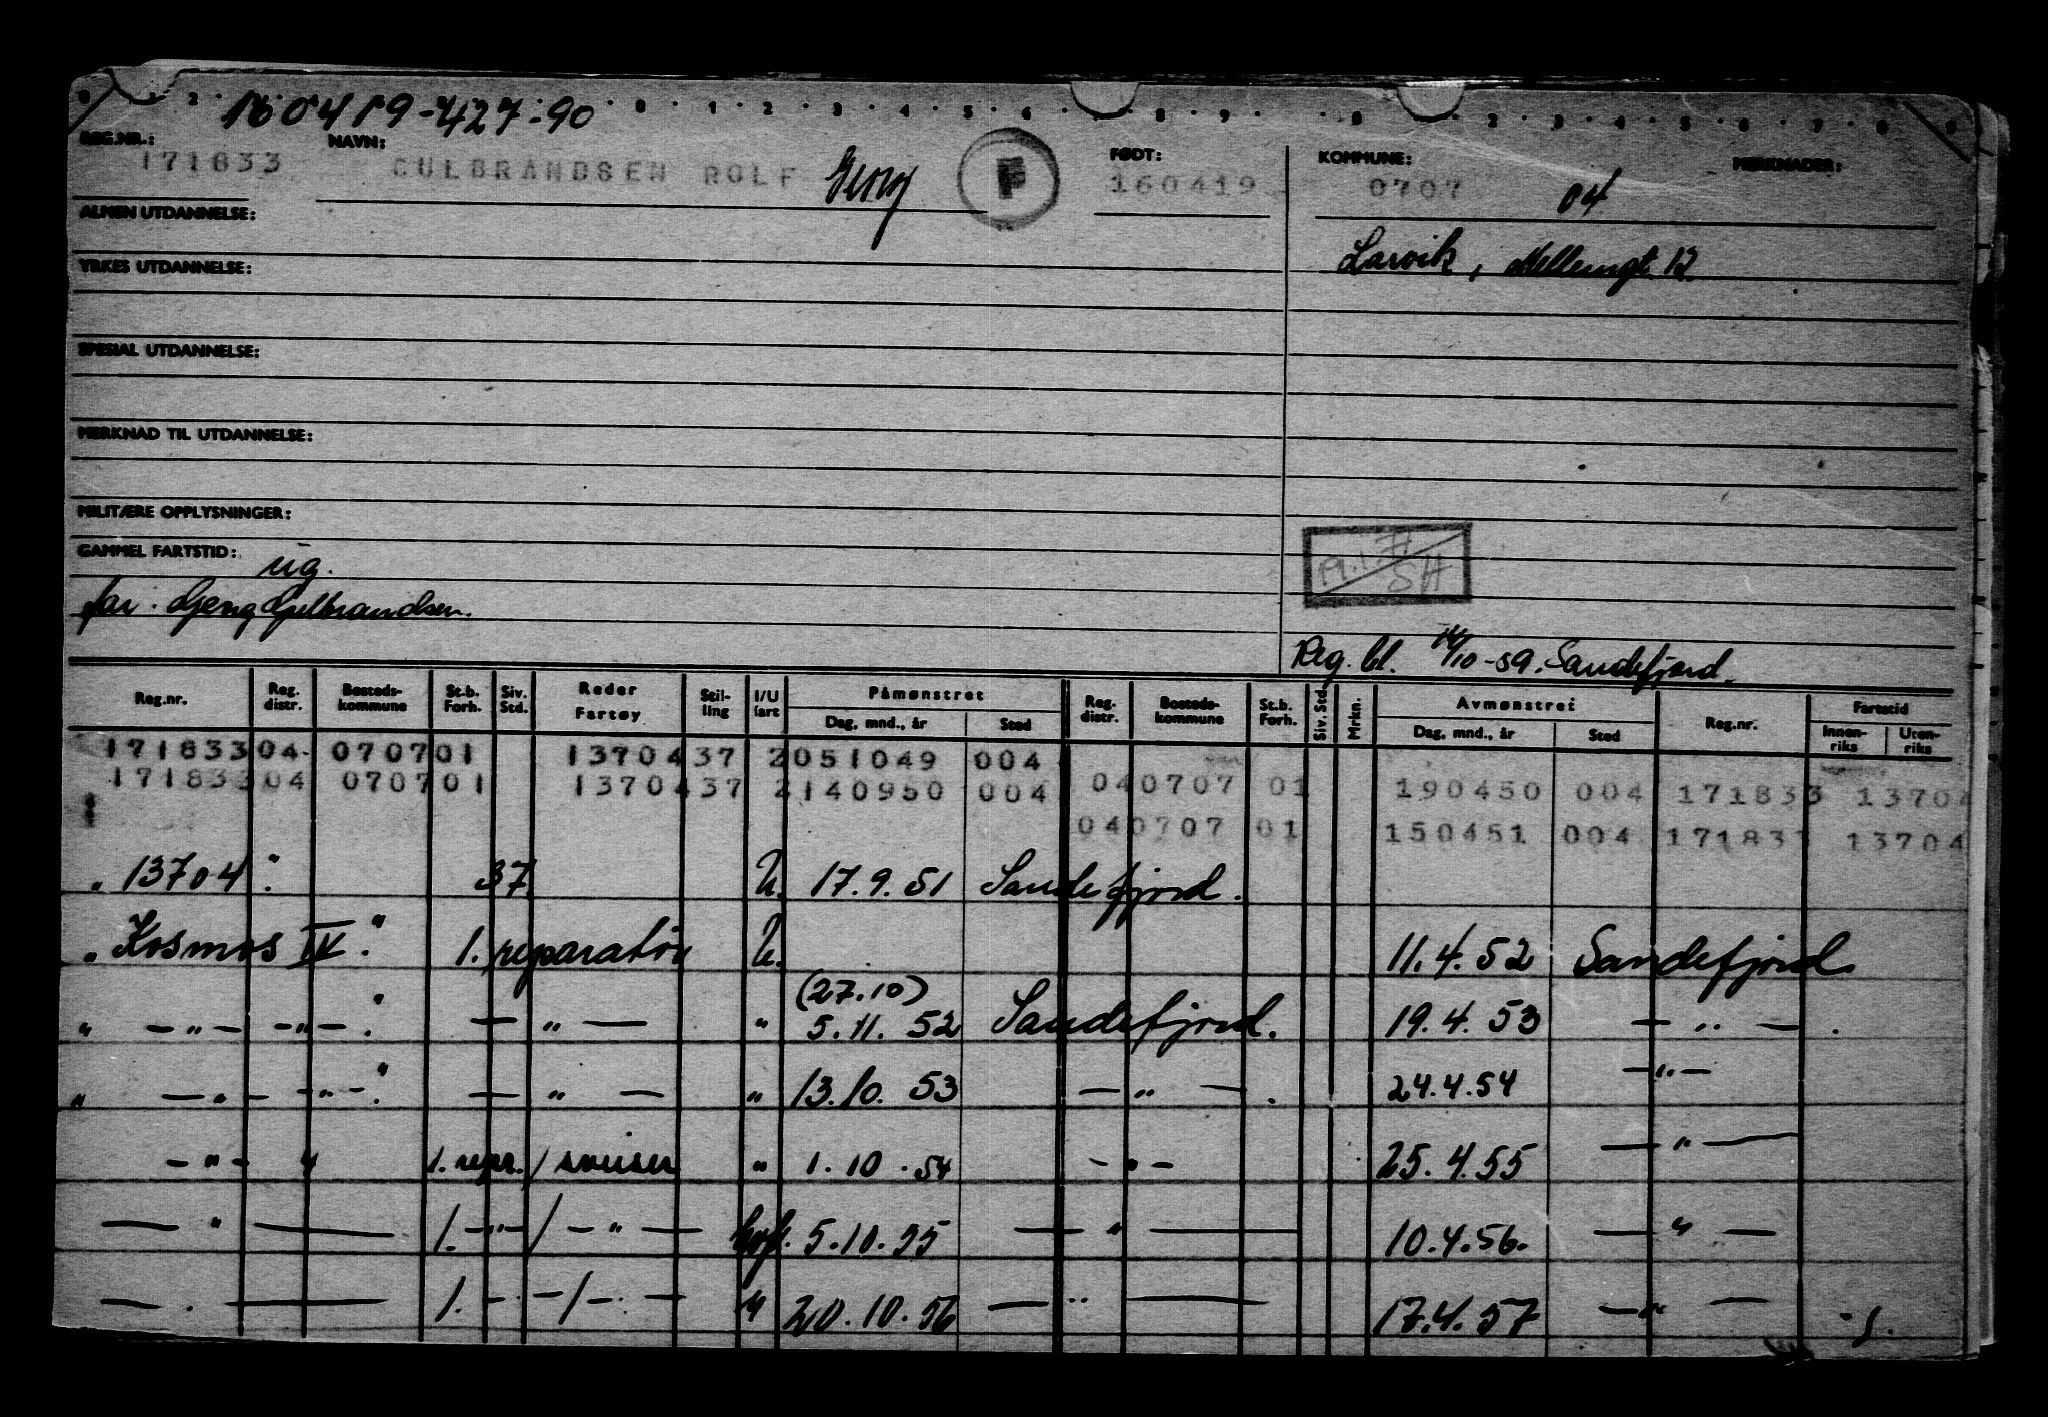 160419-427-90
REG.NR.: NAVN: FØDT: KOMMUNE: MERKNADER:
171833 GULBRANDSEN ROLF Georg F 160419 0707 04
ALMEN UTDANNELSE:
Larvik, Mellemgt. 12
YRKES UTDANNELSE:
SPESIAL UTDANNELSE:
MERKNAD TIL UTDANNELSE:
MILITÆRE OPPLYSNINGER:
GAMMEL FARTSTID: ug.
far: Georg Gulbrandsen.
Reg. bl. 14/10-59. Sandefjord.
Reg.nr. Reg. distr. Bosteds-kommune St.b. Forh. Siv. Std. Reder Fartøy Stil-ling I/U fart Påmønstret Dag, mnd., år Sted Reg. distr. Bosteds-kommune St.b. Forh. Siv. Std Mrkn. Avmønstret Dag, mnd., år Sted Reg.nr. Fartstid Innen-riks Uten-riks
171833 04 0707 01 13704 37 2 051049 004
171833 04 0707 01 13704 37 2 140950 004 04 0707 01 190450 004 171833 13704
04 0707 01 150451 004 171833 13704
" 13704 " 37 U. 17.9.51 Sandefjord.
" Kosmos IV " 1. reparatør U. 11.4.52 Sandefjord
(27.10)
" — " — — " — " — " — " 5.11.52 Sandefjord. 19.4.53 — " — .
" — " — — " — " — " — " 13.10.53 — " — . 24.4.54 — " —
— " — " 1. repr./ sveiser " 1.10.54 — " — 25.4.55 — " —
— " — 1. — " — / — " — hvf. 5.10.55 — " — 10.4.56. — " —
— " — 1. — " — / — " — " 20.10.56 — " — 17.4.57 — " —